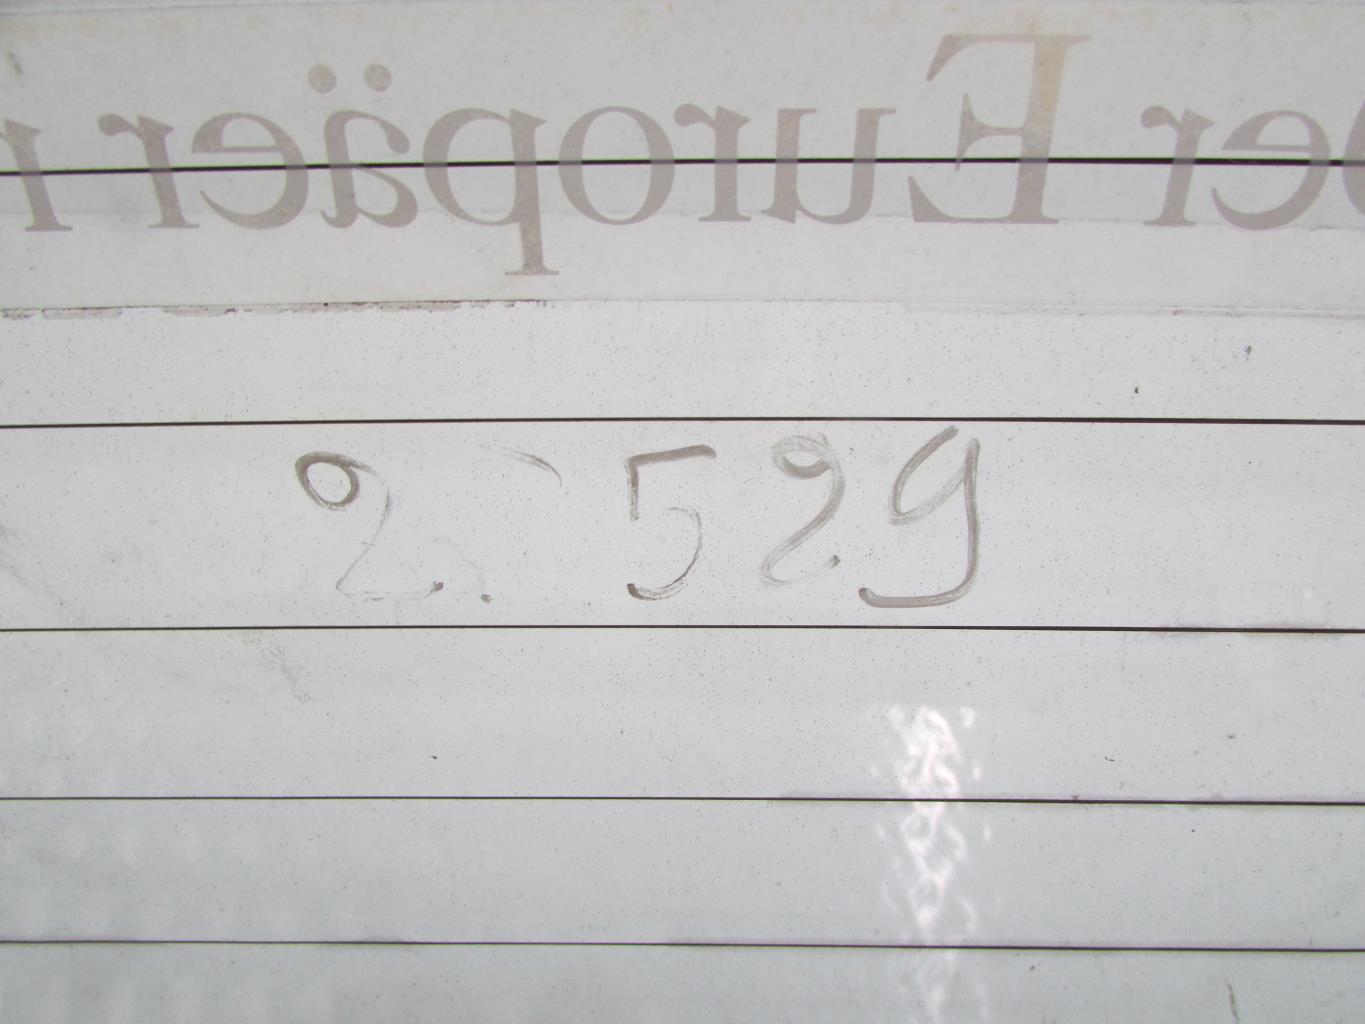 der Europäer
2.529